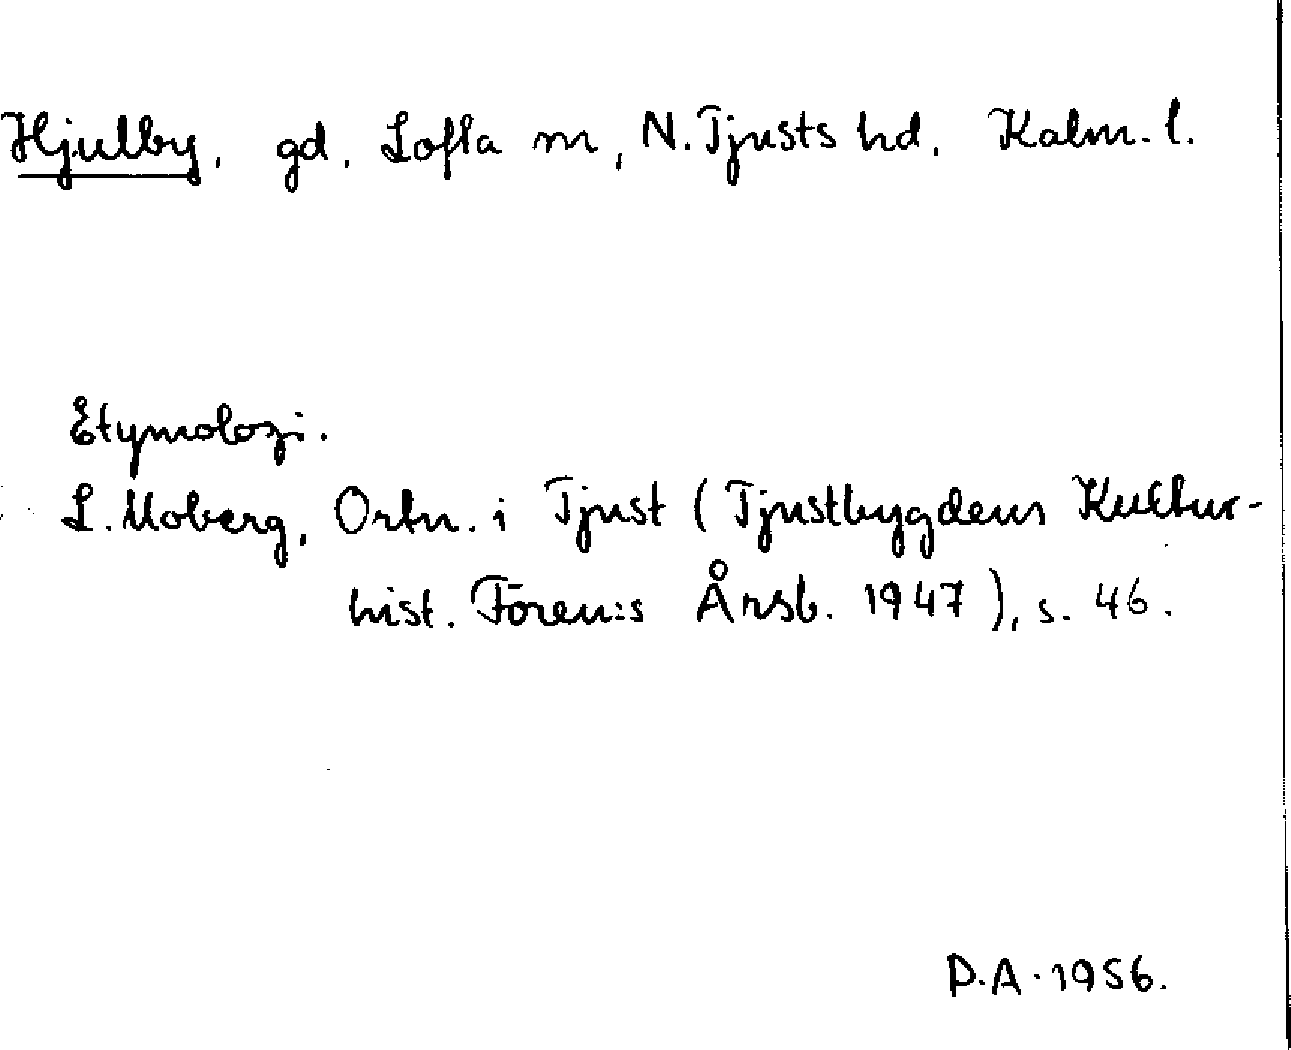 Hjulby, gd. Lofta sn, N. Tjusts hd. Kalm. l.
Etymologi.
L. Moberg, Ortn. i Tjust (Tjustbygdens Kultur-
hist. Fören:s Årsb. 1947), s. 46.
P.A. 1956.